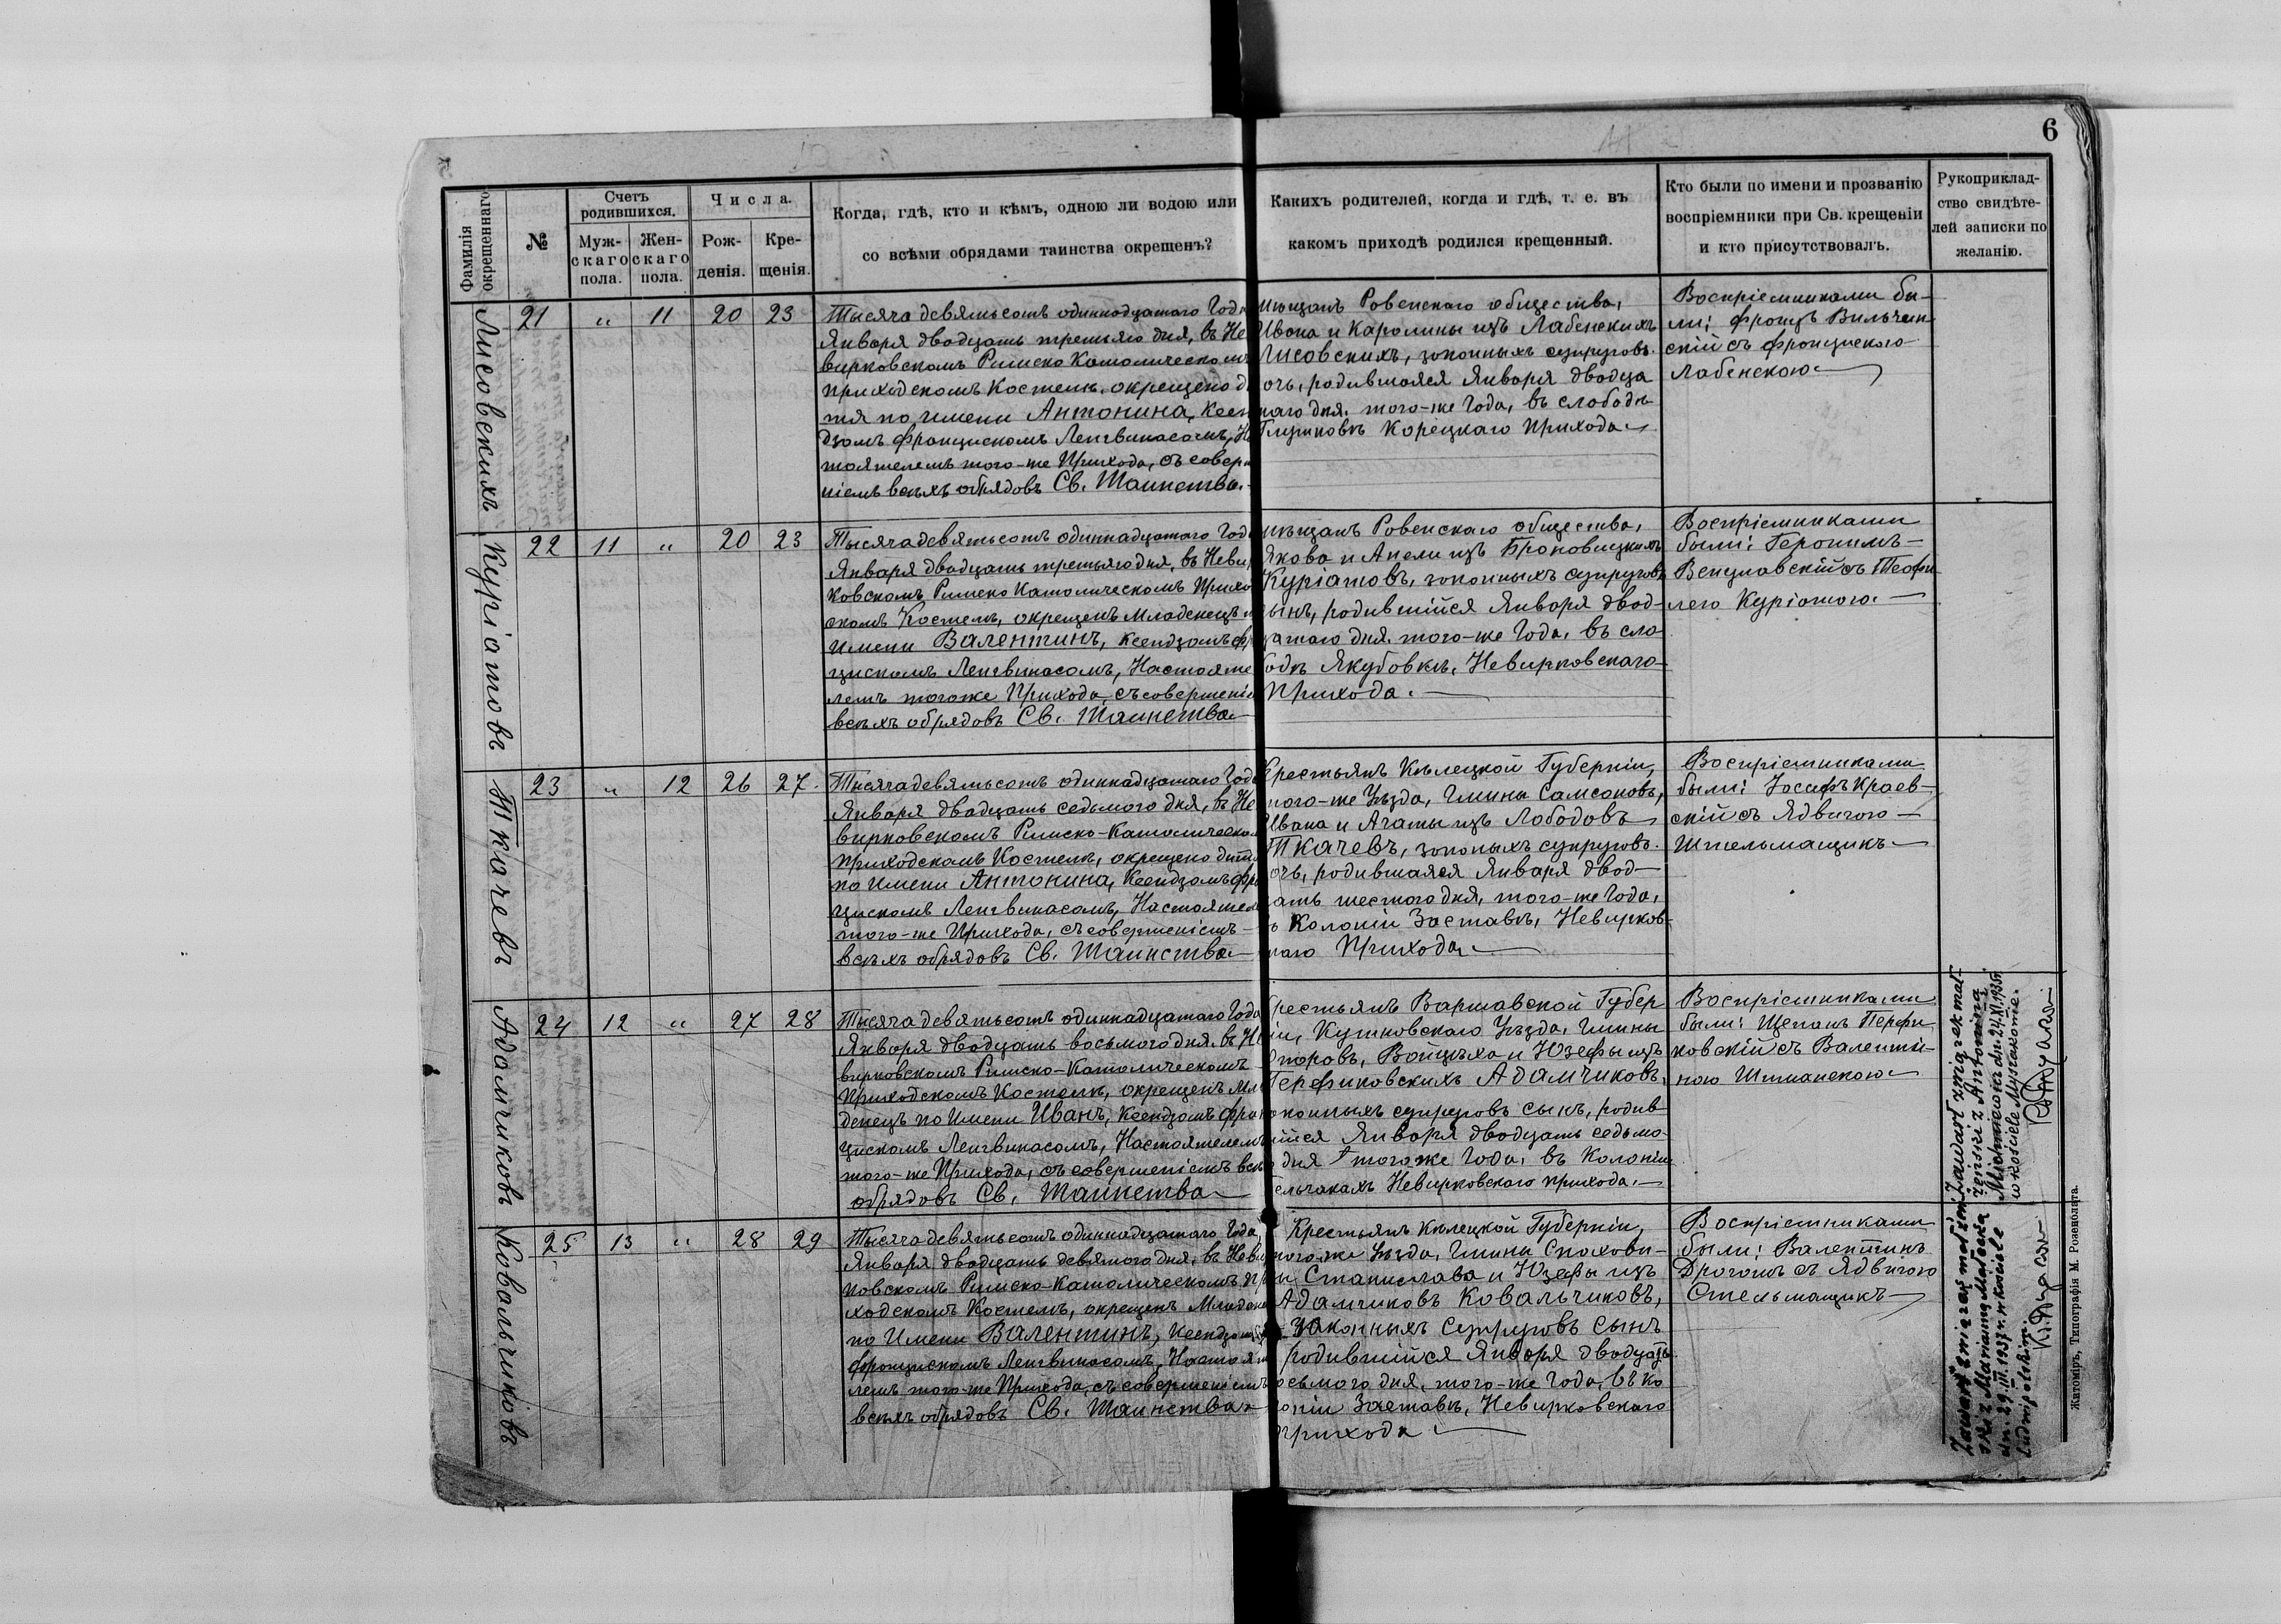 6
Фамилія окрещеннаго
№
Счетъ родившихся.
Мужскаго пола.
Женскаго пола.
Числа.
Рожденія.
Крещенія.
Когда, гдѣ, кто и кѣмъ, одною ли водою или
со всѣми обрядами таинства окрещенъ?
Какихъ родителей, когда и гдѣ, т. е. въ
какомъ приходѣ родился крещенный.
Кто были по имени и прозванію
воспріемники при Св. крещеніи
и кто присутствовалъ.
Рукоприклад-
ство свидѣте-
лей записки по
желанію.
Лисовскихъ
21 " 11 20 23
Тысяча девятьсотъ одиннадцатаго Года
Января двадцать третьяго дня, въ Не
вирковскомъ Римско Католическомъ
Приходскомъ Костелѣ, окрещено ди
тя по имени Антонина, Ксен
дзомъ Францискомъ Ленгвинасомъ, На
тоятелемъ того-же Прихода, съ соверше
ніемъ всѣхъ обрядовъ Св. Таинства.
мѣщанъ Ровенскаго общества,
Ивана и Каролины изъ Лабенскихъ
Лисовскихъ, законныхъ супруговъ
очь, родившаяся Января двадца
таго дня, того-же Года, въ слободѣ
Глушковѣ Корецкаго Прихода.
Воспріемниками бы-
ли: Францъ Вильчин-
скій съ Францискою
Лабенскою
Куріатовъ
22 11 " 20 23
Тысяча девятьсотъ одиннадцатаго Года
Января двадцать третьяго дня, въ Невир
ковскомъ Римско Католическомъ Приход
скомъ Костелѣ, окрещенъ Младенецъ п
имени Валентинъ, Ксендзомъ Фр
цискомъ Ленгвинасомъ, Настояте
лемъ тогоже Прихода, съ совершені
всѣхъ обрядовъ Св. Таинства
мѣщанъ Ровенскаго общества,
Якова и Анели изъ Броновицкихъ
Куріатовъ, законныхъ супруговъ
ынъ, родившійся Января двад-
цатаго дня, того-же Года, въ сло
бодѣ Якубовкѣ, Невирковскаго
Прихода.
Воспріемниками
были: Геронимъ
Венцлавскій съ Теофи
лею Куріатою.
Ткачевъ
23 " 12 26 27.
Тысяча девятьсотъ одиннадцатаго Года
Января двадцать седьмого дня, въ Не
вирковскомъ Римско-Католическом
Приходскомъ Костелѣ, окрещено дитя
по имени Антонина, Ксендзомъ Фра
цискомъ Ленгвинасомъ, Настоятел
того-же Прихода, съ совершеніемъ
всѣхъ обрядовъ Св. Таинства
Крестьянъ Кѣлецкой Губерніи,
того-же Уѣзда, Гмины Самсоновъ,
Ивана и Агаты изъ Лободовъ
Ткачевъ, законыхъ супруговъ
очь, родившаяся Января двад-
цать шестого дня, того-же Года,
въ Колоніи Заставѣ, Невирков-
скаго Прихода
Воспріемниками
были: Іосифъ Краев-
скій съ Ядвигою
Штельмащикъ
Адамчиковъ
24 12 " 27 28
Тысяча девятьсотъ одиннадцатаго Года
Января двадцать восьмого дня, въ Не
вирковскомъ Римско-Католическомъ
Приходскомъ Костелѣ, окрещенъ Мла
денецъ по имени Иванъ, Ксендзомъ Фран
цискомъ Ленгвинасомъ, Настоятелемъ
того-же Прихода, съ совершеніемъ всѣ
обрядовъ Св. Таинства
Крестьянъ Варшавской Губер
ніи, Кутновскаго Уѣзда, Гмины
Войцѣха и Юзефы изъ
Перфиковскихъ Адамчиковъ,
законныхъ супруговъ сынъ, родив
шійся Января двадцать седьмо-
дня тогоже Года, въ Колоніи
Невирковскаго прихода.
Воспріемниками
были: Щепанъ Перфи
ковскій съ Валенти-
ною Шиманскою
Zawarł związek mał-
żeński z Antoniną
dn. 24.XI.1935r.
w kościele
Ковальчиковъ
25 13 " 28 29
Тысяча девятьсотъ одиннадцатаго Года,
Января двадцать девятого дня, въ Невир
ковскомъ Римско-Католическомъ При
ходскомъ Костелѣ, окрещенъ Младене
по имени Валентинъ, Ксендзомъ
Францискомъ Ленгвинасомъ, Настояте
лемъ того-же Прихода, съ совершеніемъ
всѣхъ обрядовъ Св. Таинства
Крестьянъ Кѣлецкой Губерніи,
того-же Уѣзда, Гмины
Станислава и Юзефы изъ
Адамчиковъ Ковальчиковъ,
законныхъ супруговъ сынъ
родившійся Января двадцать
осьмого дня, того-же Года, въ Ко
лоніи Заставѣ, Невирковскаго
прихода
Воспріемниками
были: Валентинъ
Драганъ съ Ядвигою
Стельмащикъ
Zawarł związek małżeń-
ski z Marianną Małecką
dn. 29.III.1937 r. w kościele
Ludwipolskim.
Житоміръ, Типографія М. Розенблята.